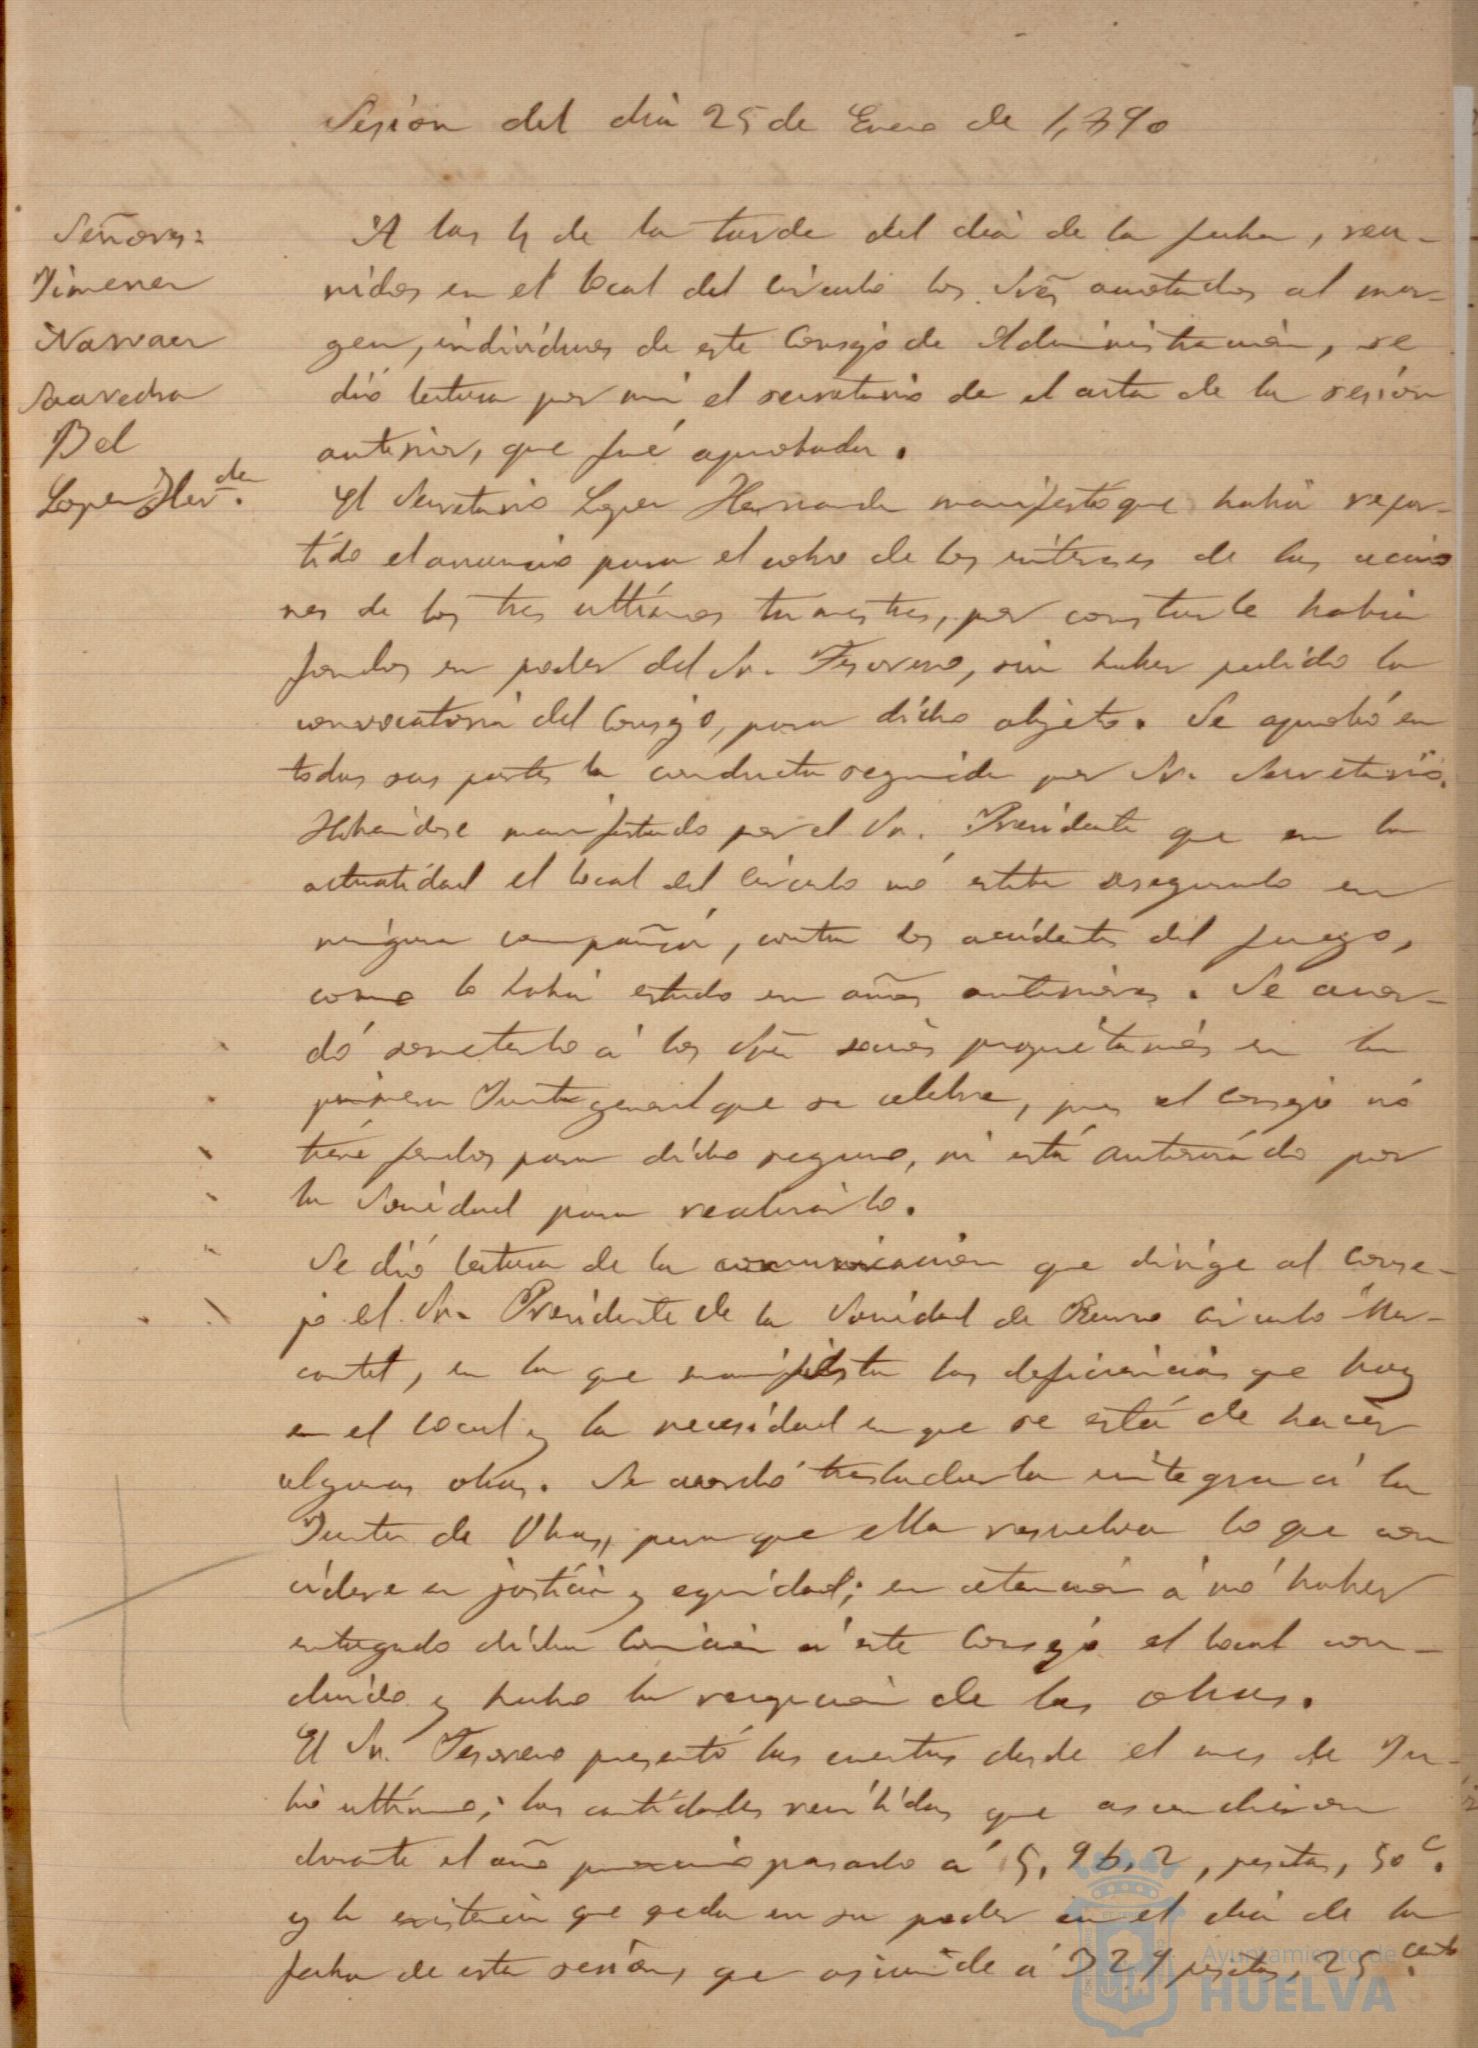 Sesión del dia 25 de Enero de 1,890
Señores:
Jimenez
Narvaez
Saavedra
Bel
Lopez Herdez.
A las 4 de la tarde del dia de la fecha, reu-
nidos en el local del Circulo los Sres anotados al mar-
gen, individuos de este Consejo de Administracion, se
dió lectura por mi el secretario de el acta de la sesión
anterior, que fué aprobada.
El Secretario Lopez Hernandez manifestó que habia repar-
tido el anuncio para el cobro de los intereses de las accio
nes de los tres ultimos trimestres, por constarle habia
fondos en poder del Sr. Tesorero, sin haber pedido la
convocatoria del Consejo, para dicho objeto. Se aprobó en
todas sus partes la conducta seguida por Sr. Secretario.
Habiendose manifestado por el Sr. Presidente que en la
actualidad el local del Circulo nó estaba asegurado en
ninguna compañia, contra los accidentes del fuego,
como lo habia estado en años anteriores. Se acor-
dó someterlo á los Sres socios propietarios en la
primera Junta general que se celebre, pues el consejo nó
tiene fondos para dicho seguro, ni está autorizado por
la Sociedad para realizarlo.
Se dió lectura de la comunicacion que dirige al Conse-
jo el Sr. Presidente de la Sociedad de Recreo Circulo Mer-
cantil, en la que manifiesta las deficiencias que hay
en el local y la necesidad en que se está de hacer
algunas obras. Se acordó trasladarla integra á la
Junta de Obras, para que ella resuelva lo que con
sidere en justicia y equidad; en atencion á nó haber
entregado dicha Comision á este Consejo el local con-
cluido y hecho la recepcion de las obras.
El Sr. Tesorero presentó las cuentas desde el mes de Ju-
lio ultimo; las cantidades recibidas que ascendieron
durante el año proximo pasado á 5,962, pesetas, 50 c.
y la existencia que queda en su poder en el dia de la
fecha de esta sesión, que asciende á 329 pesetas, 25 cents.
Ayuntamiento de
HUELVA